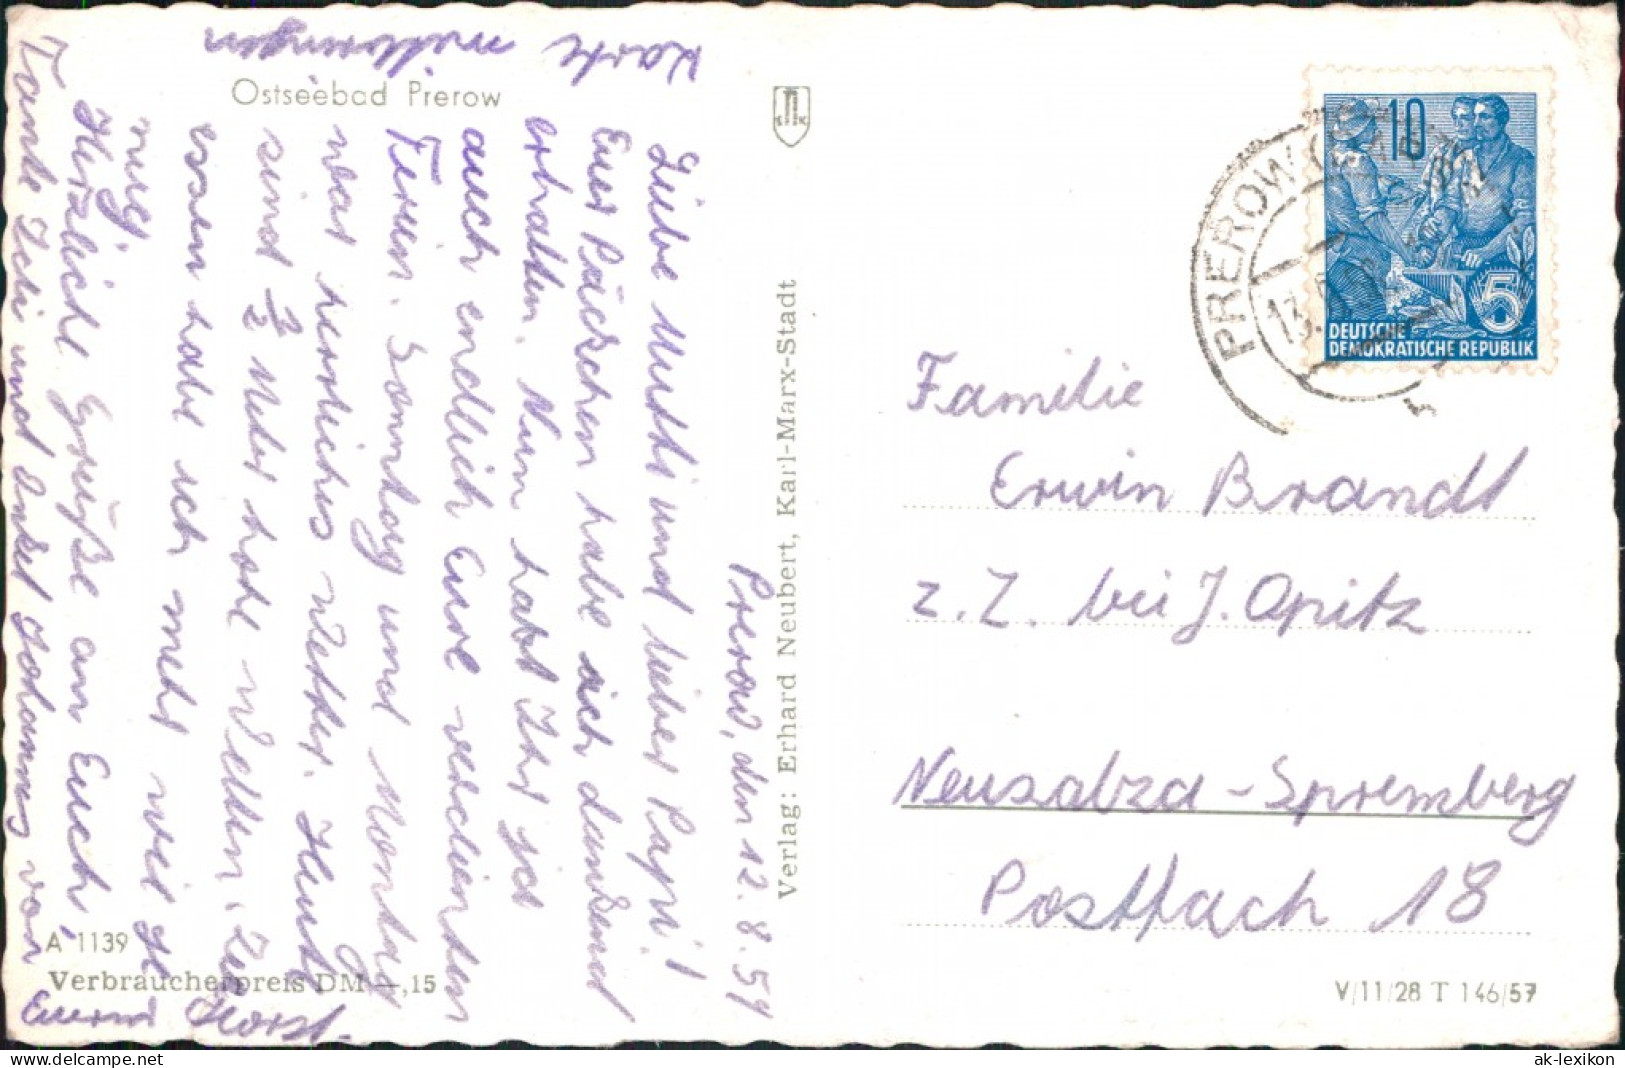 Ostseebad Prerow
Prerow, den 12.8.59
Liebe Mutti und lieber Papi!
Euer Päckchen habe ich dankend
erhalten. Nun habt Ihr ja
auch endlich Eure verdienten
Ferien. Sonntag und Montag
war herrliches Wetter. Heute
sind ½ Meter hohe Wellen. Zu
essen habe ich mehr wie ge
nug.
Herzliche Grüße an Euch,
Tante Idi und Onkel Johannes von
Eurem Horst.
Karte mitbringen
A 1139
Verbraucherpreis DM —,15
Verlag: Erhard Neubert, Karl-Marx-Stadt
PREROW
13.8.
10
5
DEUTSCHE
DEMOKRATISCHE REPUBLIK
Familie
Erwin Brandt
z. Z. bei J. Opitz
Neusalza-Spremberg
Postfach 18
V/11/28 T 146/57
ak-lexikon